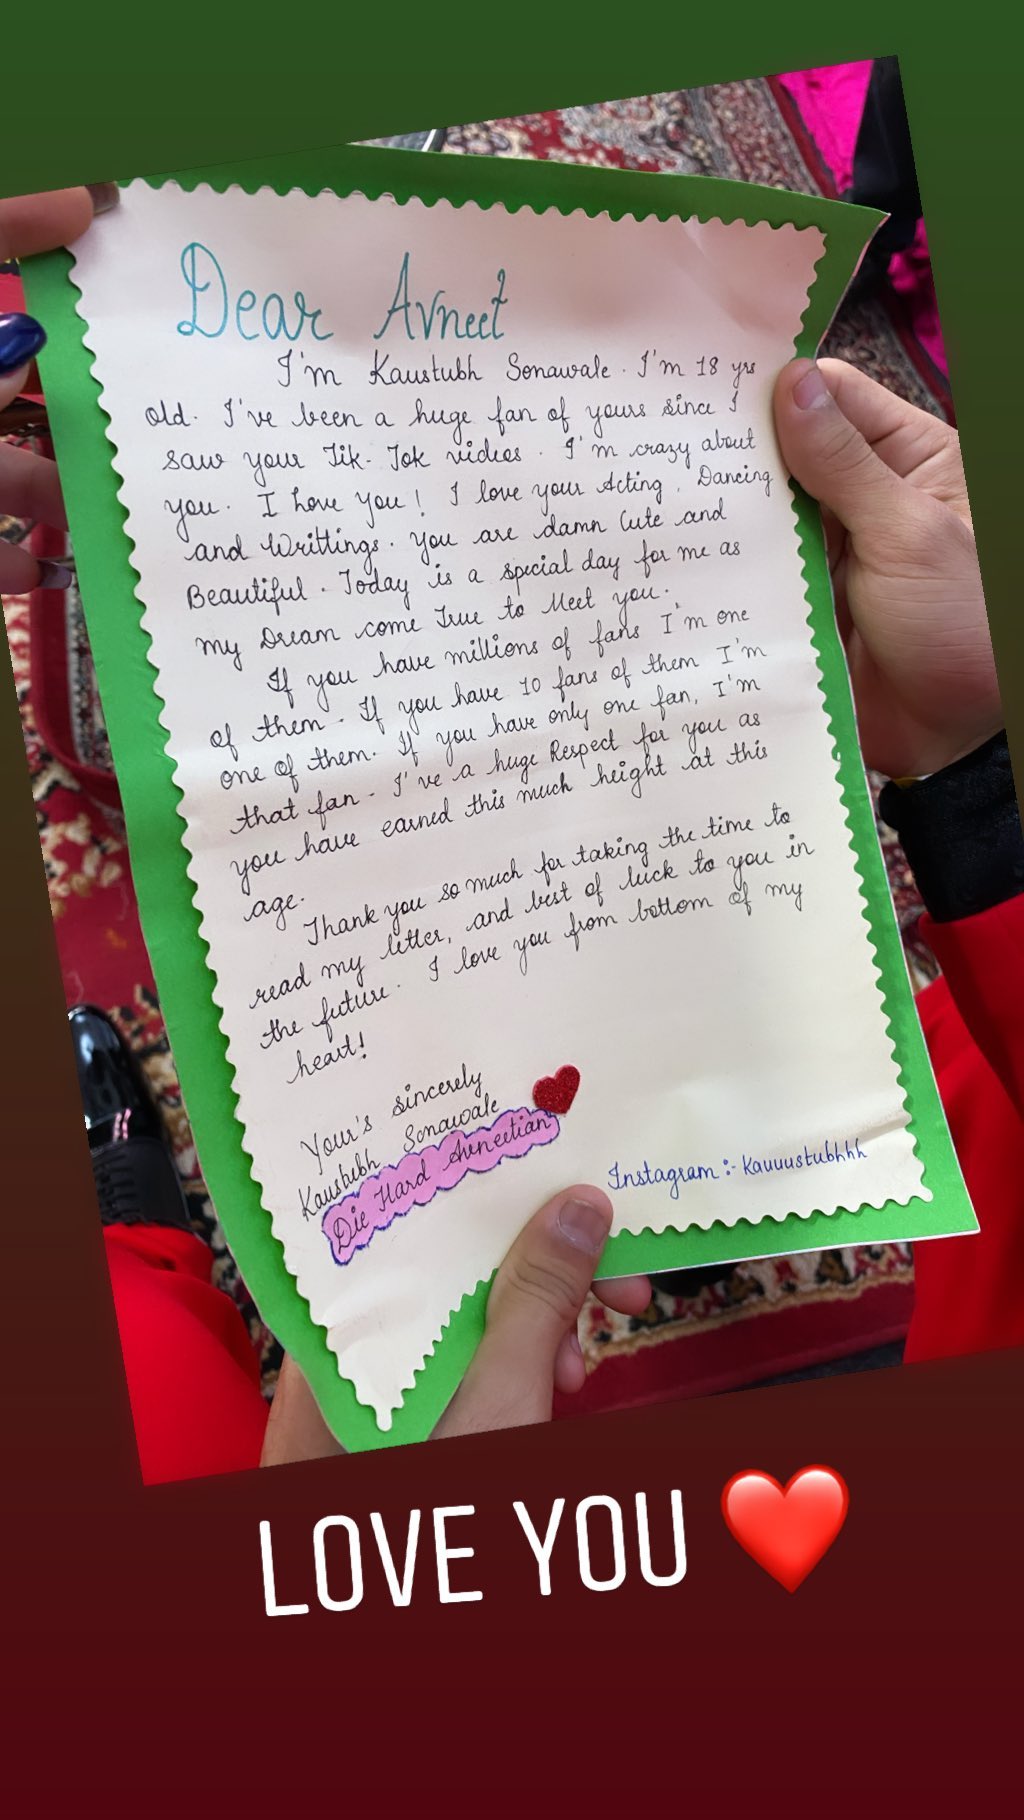 Dear Avneet
I'm Kaustubh Sonawale. I'm 18 yrs
old. I've been a huge fan of yours since I
saw your Tik-Tok videos. I'm crazy about
you. I love you! I love your Acting, Dancing
and Writtings. You are damn Cute and
Beautiful. Today is a special day for me as
my Dream come True to Meet you.
If you have millions of fans I'm one
of them. If you have 10 fans of them I'm
one of them. If you have only one fan, I'm
that fan. I've a huge Respect for you as
you have earned this much height at this
age.
Thank you so much for taking the time to
read my letter, and best of luck to you in
the future. I love you from bottom of my
heart!
Your's sincerely
Kaustubh Sonawale
Die Hard Avneetian
Instagram :- kauuustubhhh
LOVE YOU ❤️